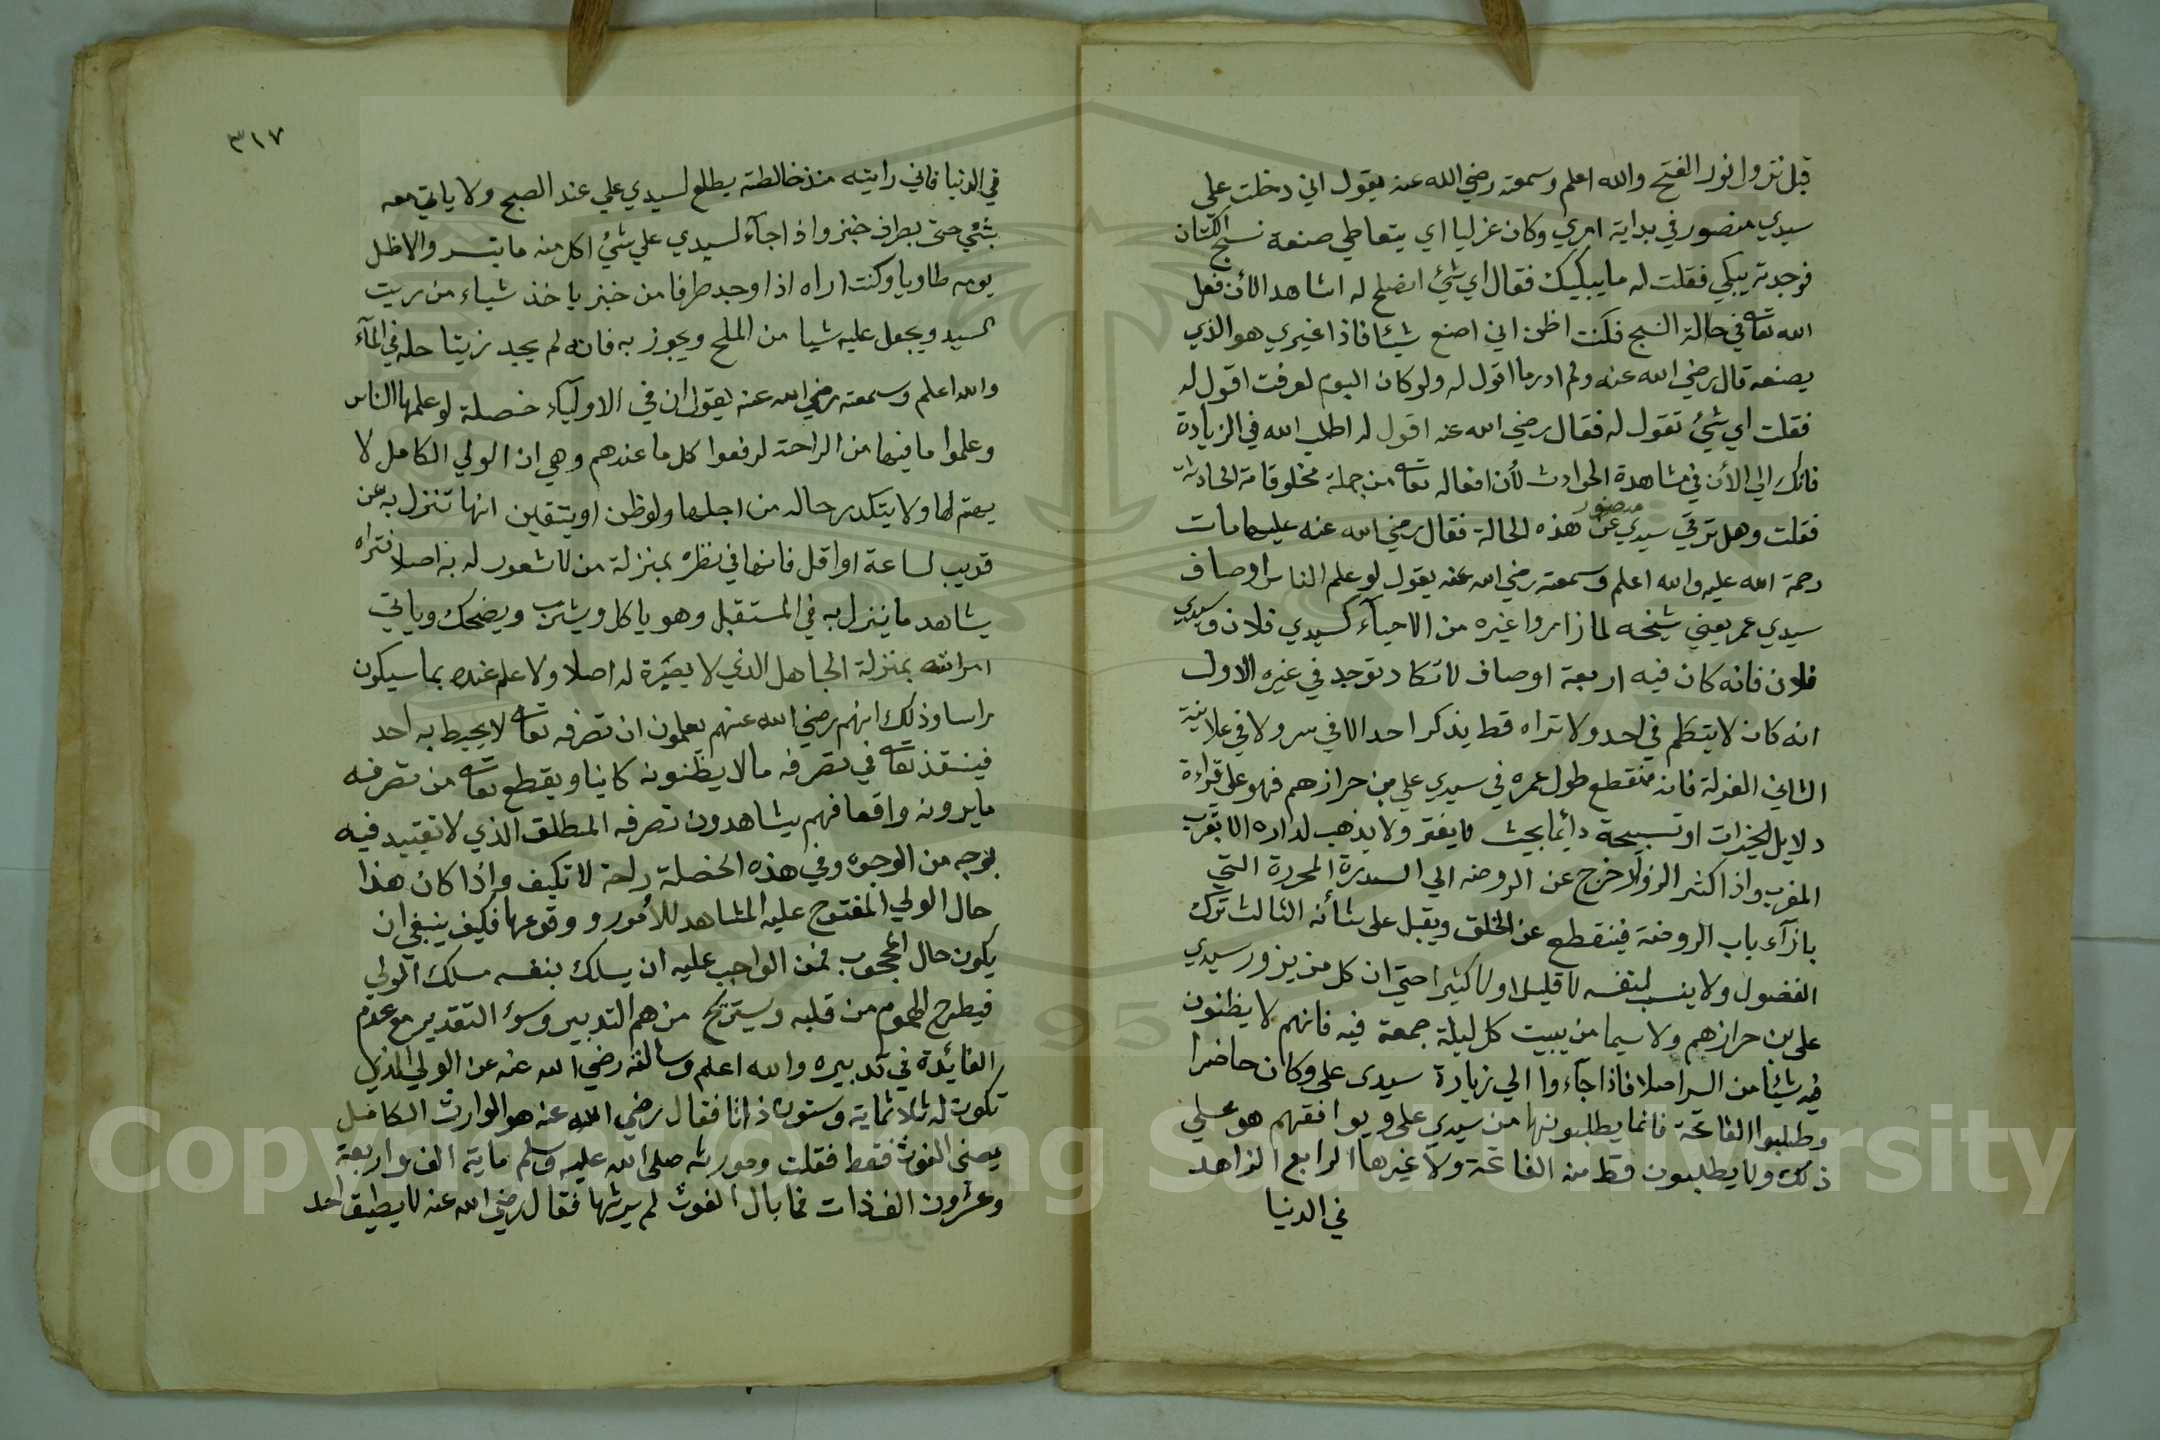 قبل نزول نور الفتح والله اعلم وسمعته رضي الله عنه يقول اني دخلت علي
سيدي منصور في بداية امري وكان غزليا اي يتعاطي صنعة نسج الكتان
فوجدته يبكي فقلت له ما يبكيك فقال اي شئ اصلح له اشاهد الان فعل
الله تعالى في حالة النسج فكنت اظن اني اصنع شيئا فاذا غيري هو الذي
يصنعه قال رضي الله عنه ولم ادر ما اقول له ولو كان اليوم لعرفت اقول له
فقلت اي شئ تقول له فقال رضي الله عنه اقول له اطلب الله في الزيادة
فانك الي الان في مشاهدة الحوادث لان افعاله تعالى من جملة مخلوقاته الحادثة
فقلت وهل ترقي سيدي منصور عن هذه الحالة فقال رضي الله عنه عليها مات
رحمة الله عليه والله اعلم وسمعته رضي الله عنه يقول لو علم الناس اوصاف
سيدي عمر يعني شيخه لما زاروا غيره من الاحيآء كسيدي فلان وسيدي
فلان فانه كان فيه اربعة اوصاف لا تكاد توجد في غيره الاول
انه كان لا يتكلم في احد ولا تراه قط يذكر احدا لا في سر ولا في علانية
الثاني العزلة فانه منقطع طول عمره في سيدي علي بن حرازهم فهو علي قراءة
دلايل الخيرات او تسبيحة دائما بحيث لا يفتر ولا يذهب لداره الا بقرب
المغرب واذا كثر الزوار خرج عن الروضه الي السدرة المحررة التي
بازآء باب الروضة فينقطع عن الخلق ويقبل على شأنه الثالث ترك
الفضول ولا ينسب لنفسه لا قليلا ولا كثيرا حتي ان كل من يزور سيدي
على بن حرازهم ولا سيما من يبيت كل ليلة جمعة فيه فانهم لا يظنون
فيه شيئا من السر اصلا فاذا جآءوا الي زيارة سيدى على وكان حاضرا
وطلبوا الفاتحة فانما يطلبونها من سيدي على ويوافقهم هو على
ذلك ولا يطلبون قط منه الفاتحة ولا غيرها الرابع الزاهد
في الدنيا
٣١٧
في الدنيا فاني رايته منذ خالطته يطلع لسيدي علي عند الصبح ولا ياتي معه
بشئ حتى بطرف خبز واذا جآء لسيدي علي شئ اكل منه ما تيسر والا ظل
يومه طاويا وكنت اراه اذا وجد طرفا من خبز ياخذ شياء من زيت
السيد ويجعل عليه شيا من الملح ويجوز به فانه لم يجد زيتا حله في المآء
والله اعلم وسمعته رضي الله عنه يقول ان في الاوليآء خصلة لو علمها الناس
وعلموا ما فيها من الراحة لرفعوا كل ما عندهم وهي ان الولي الكامل لا
يهتم لها ولا يتكدر حاله من اجلها ولو ظن او يتيقين انها تنزل به عن
قريب لساعة او اقل فانها في نظره بمنزلة من لا شعور له به اصلا فتراه
يشاهد ما ينزل به في المستقبل وهو ياكل ويشرب ويضحك وياتي
امراته بمنزلة الجاهل الذي لا بصيرة له اصلا ولا علم عنده بما سيكون
راسا وذلك انهم رضي الله عنهم يعلمون ان تصرفه تعالى لا يحيط به احد
فينفذ تعالى في تصرفه ما لا يظنونه كاينا ويقطع تعالى من تصرفه
ما يرونه واقعا فهم يشاهدون تصرفه المطلق الذي لا تقييد فيه
بوجه من الوجوه وفي هذه الخصلة راحة لا تكيف واذا كان هذا
حال الولي المفتوح عليه المشاهد للأمور ووقوعها فكيف ينبغي ان
يكون حال المحجوب فمن الواجب عليه ان يسلك بنفسه مسلك الولي
فيطرح الهموم من قلبه ويستريح من هم التدبير وسوء التقدير مع عدم
الفائدة في تدبيره والله اعلم وسالته رضي الله عنه عن الولي الذي
تكون له ثلاثماية وستون ذاتا فقال رضي الله عنه هو الوارث الكامل
يعني الغوث فقط فقلت وموروثه صلى الله عليه وسلم ماية الف واربعة
وعشرون الف ذات فما بال الغوث لم يرثها فقال رضي الله عنه لا يطيق احد
Copyright © King Saud University